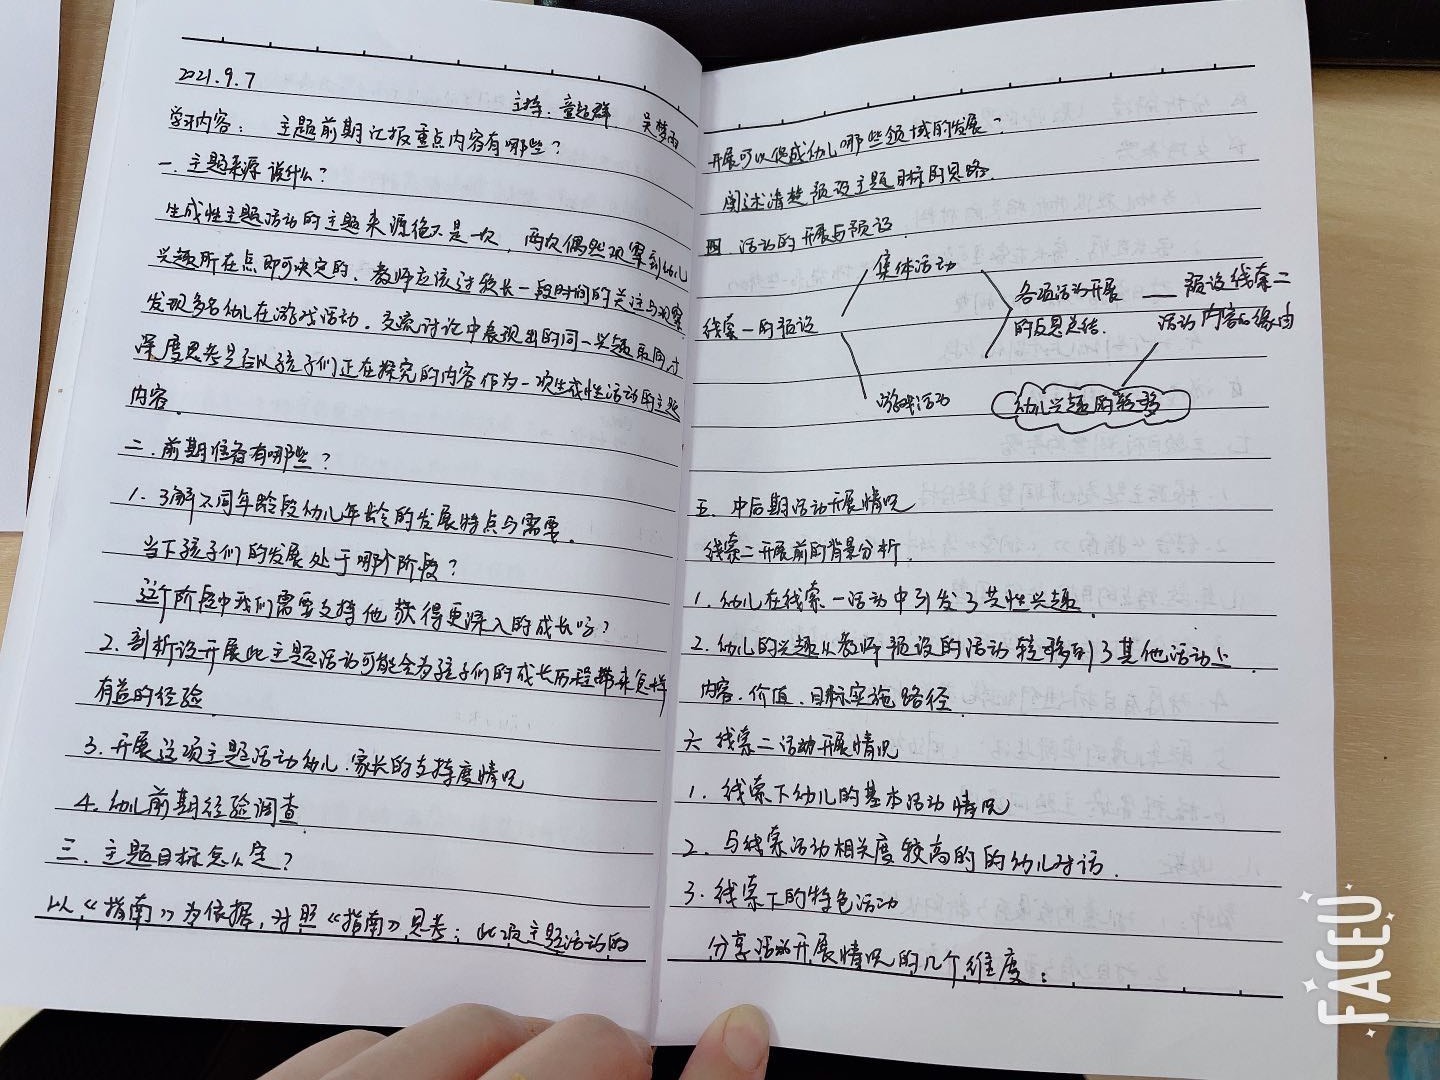 2021.9.7
主持：童超群 吴梦雨
学习内容： 主题前期汇报重点内容有哪些？
一. 主题来源说什么？
生成性主题活动的主题来源绝不是一次，两次偶然观察到幼儿
兴趣所在点即可决定的. 教师应该过较长一段时间的关注与观察.
发现多名幼儿在游戏活动. 交流讨论中表现出的同一兴趣 而同才
深度思考是否以孩子们正在探究的内容作为一次生成性活动的主题
内容.
二. 前期准备有哪些？
1. 了解不同年龄段幼儿年龄的发展特点与需要.
当下孩子们的发展处于哪个阶段？
这个阶段中我们需要支持他获得更深入的成长吗？
2. 剖析设开展此主题活动可能会为孩子们的成长历程带来怎样
有益的经验
3. 开展这项主题活动幼儿.家长的支持度情况
4. 幼儿前期经验调查
三. 主题目标怎么定？
以《指南》为依据，对照《指南》思考：此项主题活动的
开展可以促成幼儿哪些领域的发展？
阐述清楚预设主题目标的思路.
四. 活动的开展与预设
集体活动
各项活动开展 —— 预设线索二
线索一的预设
的反思总结. 活动内容的缘由
游戏活动
幼儿兴趣的转移
五. 中后期活动开展情况
线索二开展前的背景分析.
1. 幼儿在线索一活动中引发了共性兴趣
2. 幼儿的兴趣从教师预设的活动转移到了其他活动上
内容. 价值. 目标实施路径
六 线索二活动开展情况
1. 线索下幼儿的基本活动情况
2. 与线索活动相关度较高的的幼儿对话.
3. 线索下的特色活动
分享活动开展情况的几个维度：
FACEU